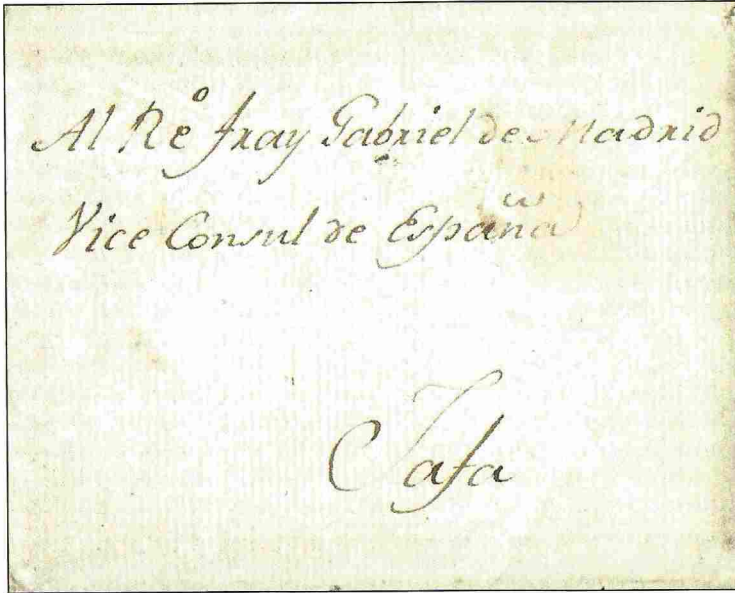 Al Rº Fray Gabriel de Madrid
Vice Consul de España
Jafa